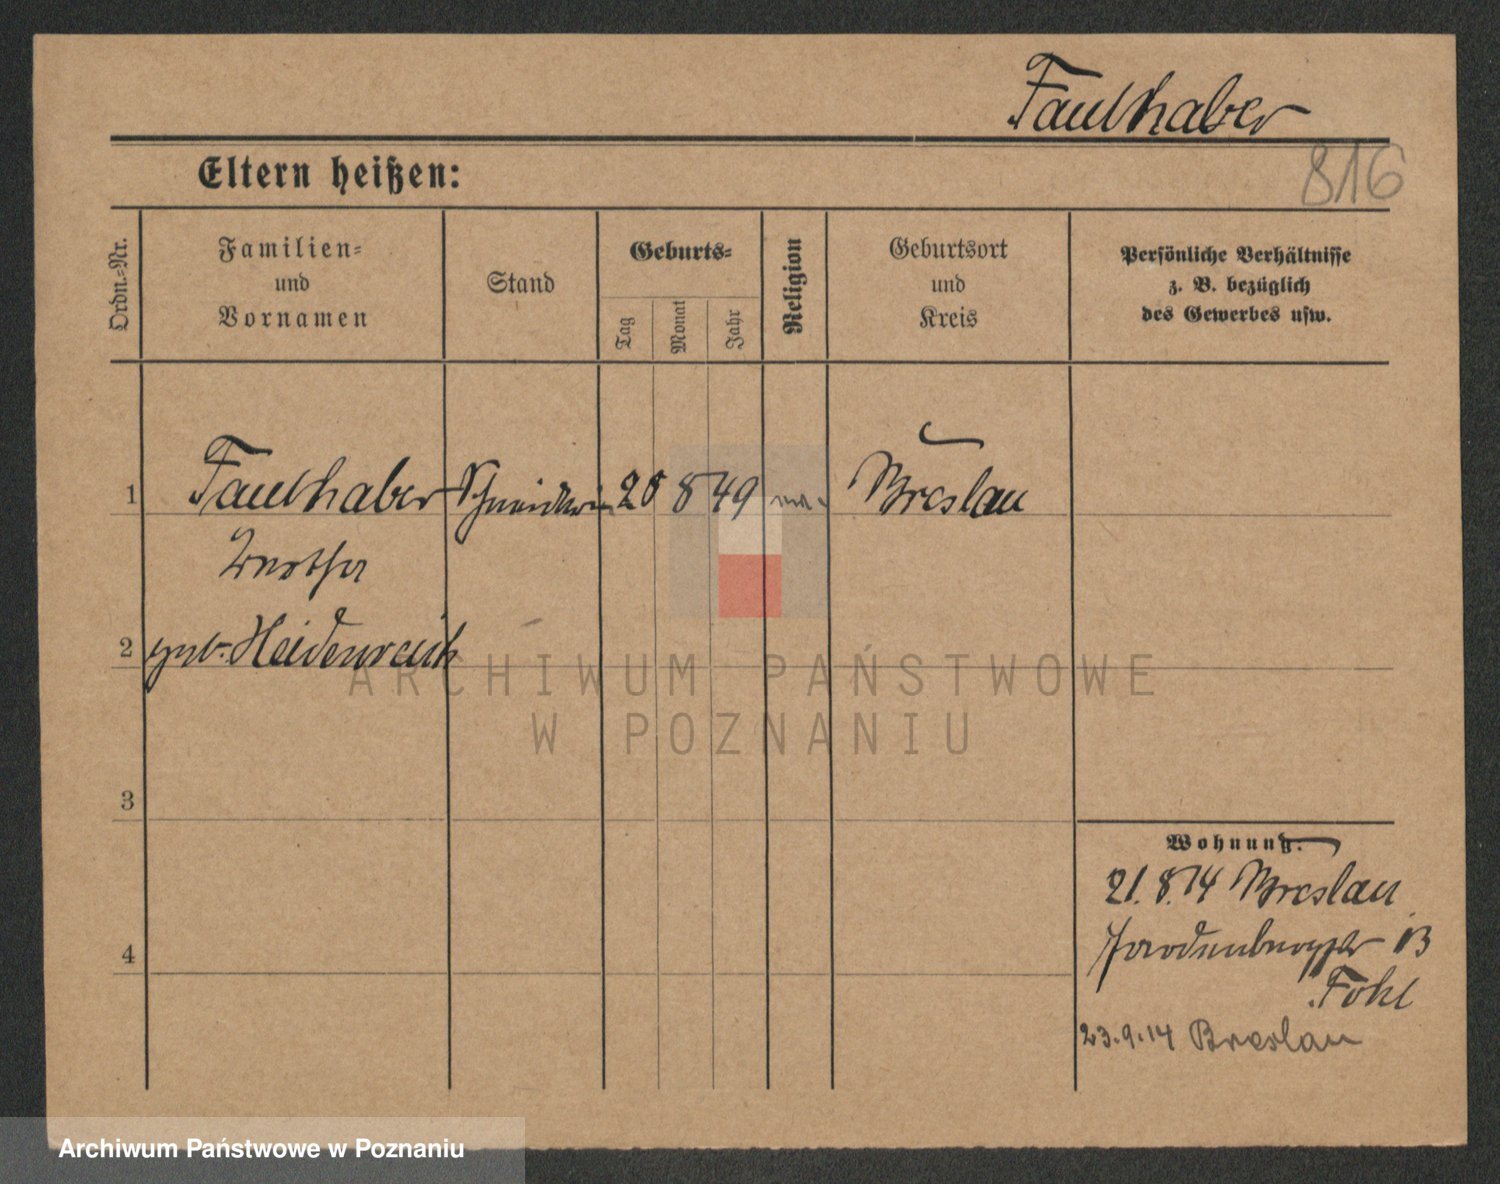 Faulhaber
816
Eltern heißen:
Ordn.=Nr.
Familien=
und
Vornamen
Stand
Geburts=
Tag
Monat
Jahr
Religion
Geburtsort
und
Kreis
Persönliche Verhältnisse
z. B. bezüglich
des Gewerbes usw.
1 Faulhaber 8 49 Breslau
2 geb. Heidenreich
3
4
Wohnung.
21. 8. 14 Breslau
Pohl
23.9.14 Breslau
ARCHIWUM PAŃSTWOWE
W POZNANIU
Archiwum Państwowe w Poznaniu